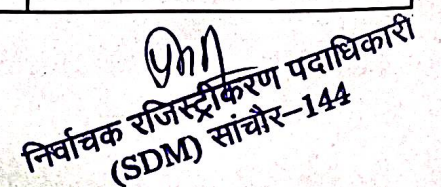 निर्वाचक रजिस्ट्रीकरण पदाधिकारी
(SDM) सांचौर–144